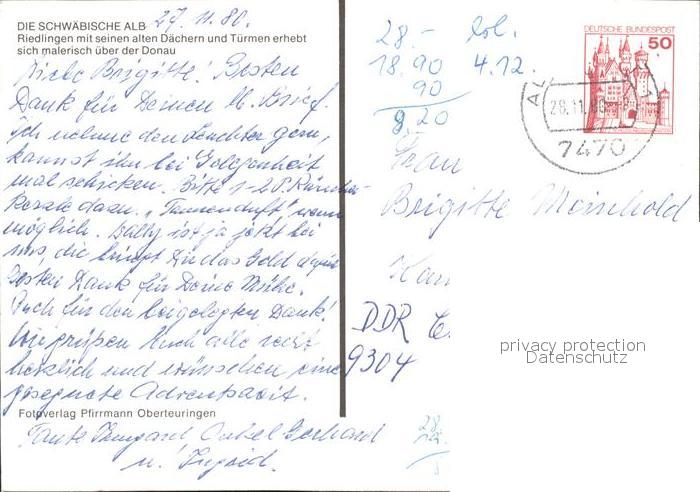 27.11.80.
DIE SCHWÄBISCHE ALB
Riedlingen mit seinen alten Dächern und Türmen erhebt
sich malerisch über der Donau
Liebe Brigitte! Besten
Dank für Deinen lb. Brief.
Ich nehme den Leuchter gern,
kannst ihn bei Gelegenheit
mal schicken. Bitte 1-2 P. Räucher-
kerzle dazu, „Tannenduft" wenn
möglich. ist ja jetzt bei
uns, die bringt Dir das Geld dafür
Besten Dank für Deine Mühe.
Auch für den beigelegten Dank!
Wir grüßen Euch alle recht
herzlich und wünschen eine
gesegnete Adventszeit.
Fotoverlag Pfirrmann Oberteuringen
Tante Irmgard, Onkel Gerhard
u. Ingrid.
28.- 
18.90 4.12.
90
9,20
DEUTSCHE BUNDESPOST
50
AL
7470
Frau
Brigitte Meinhold
DDR
9304
privacy protection
Datenschutz
28.